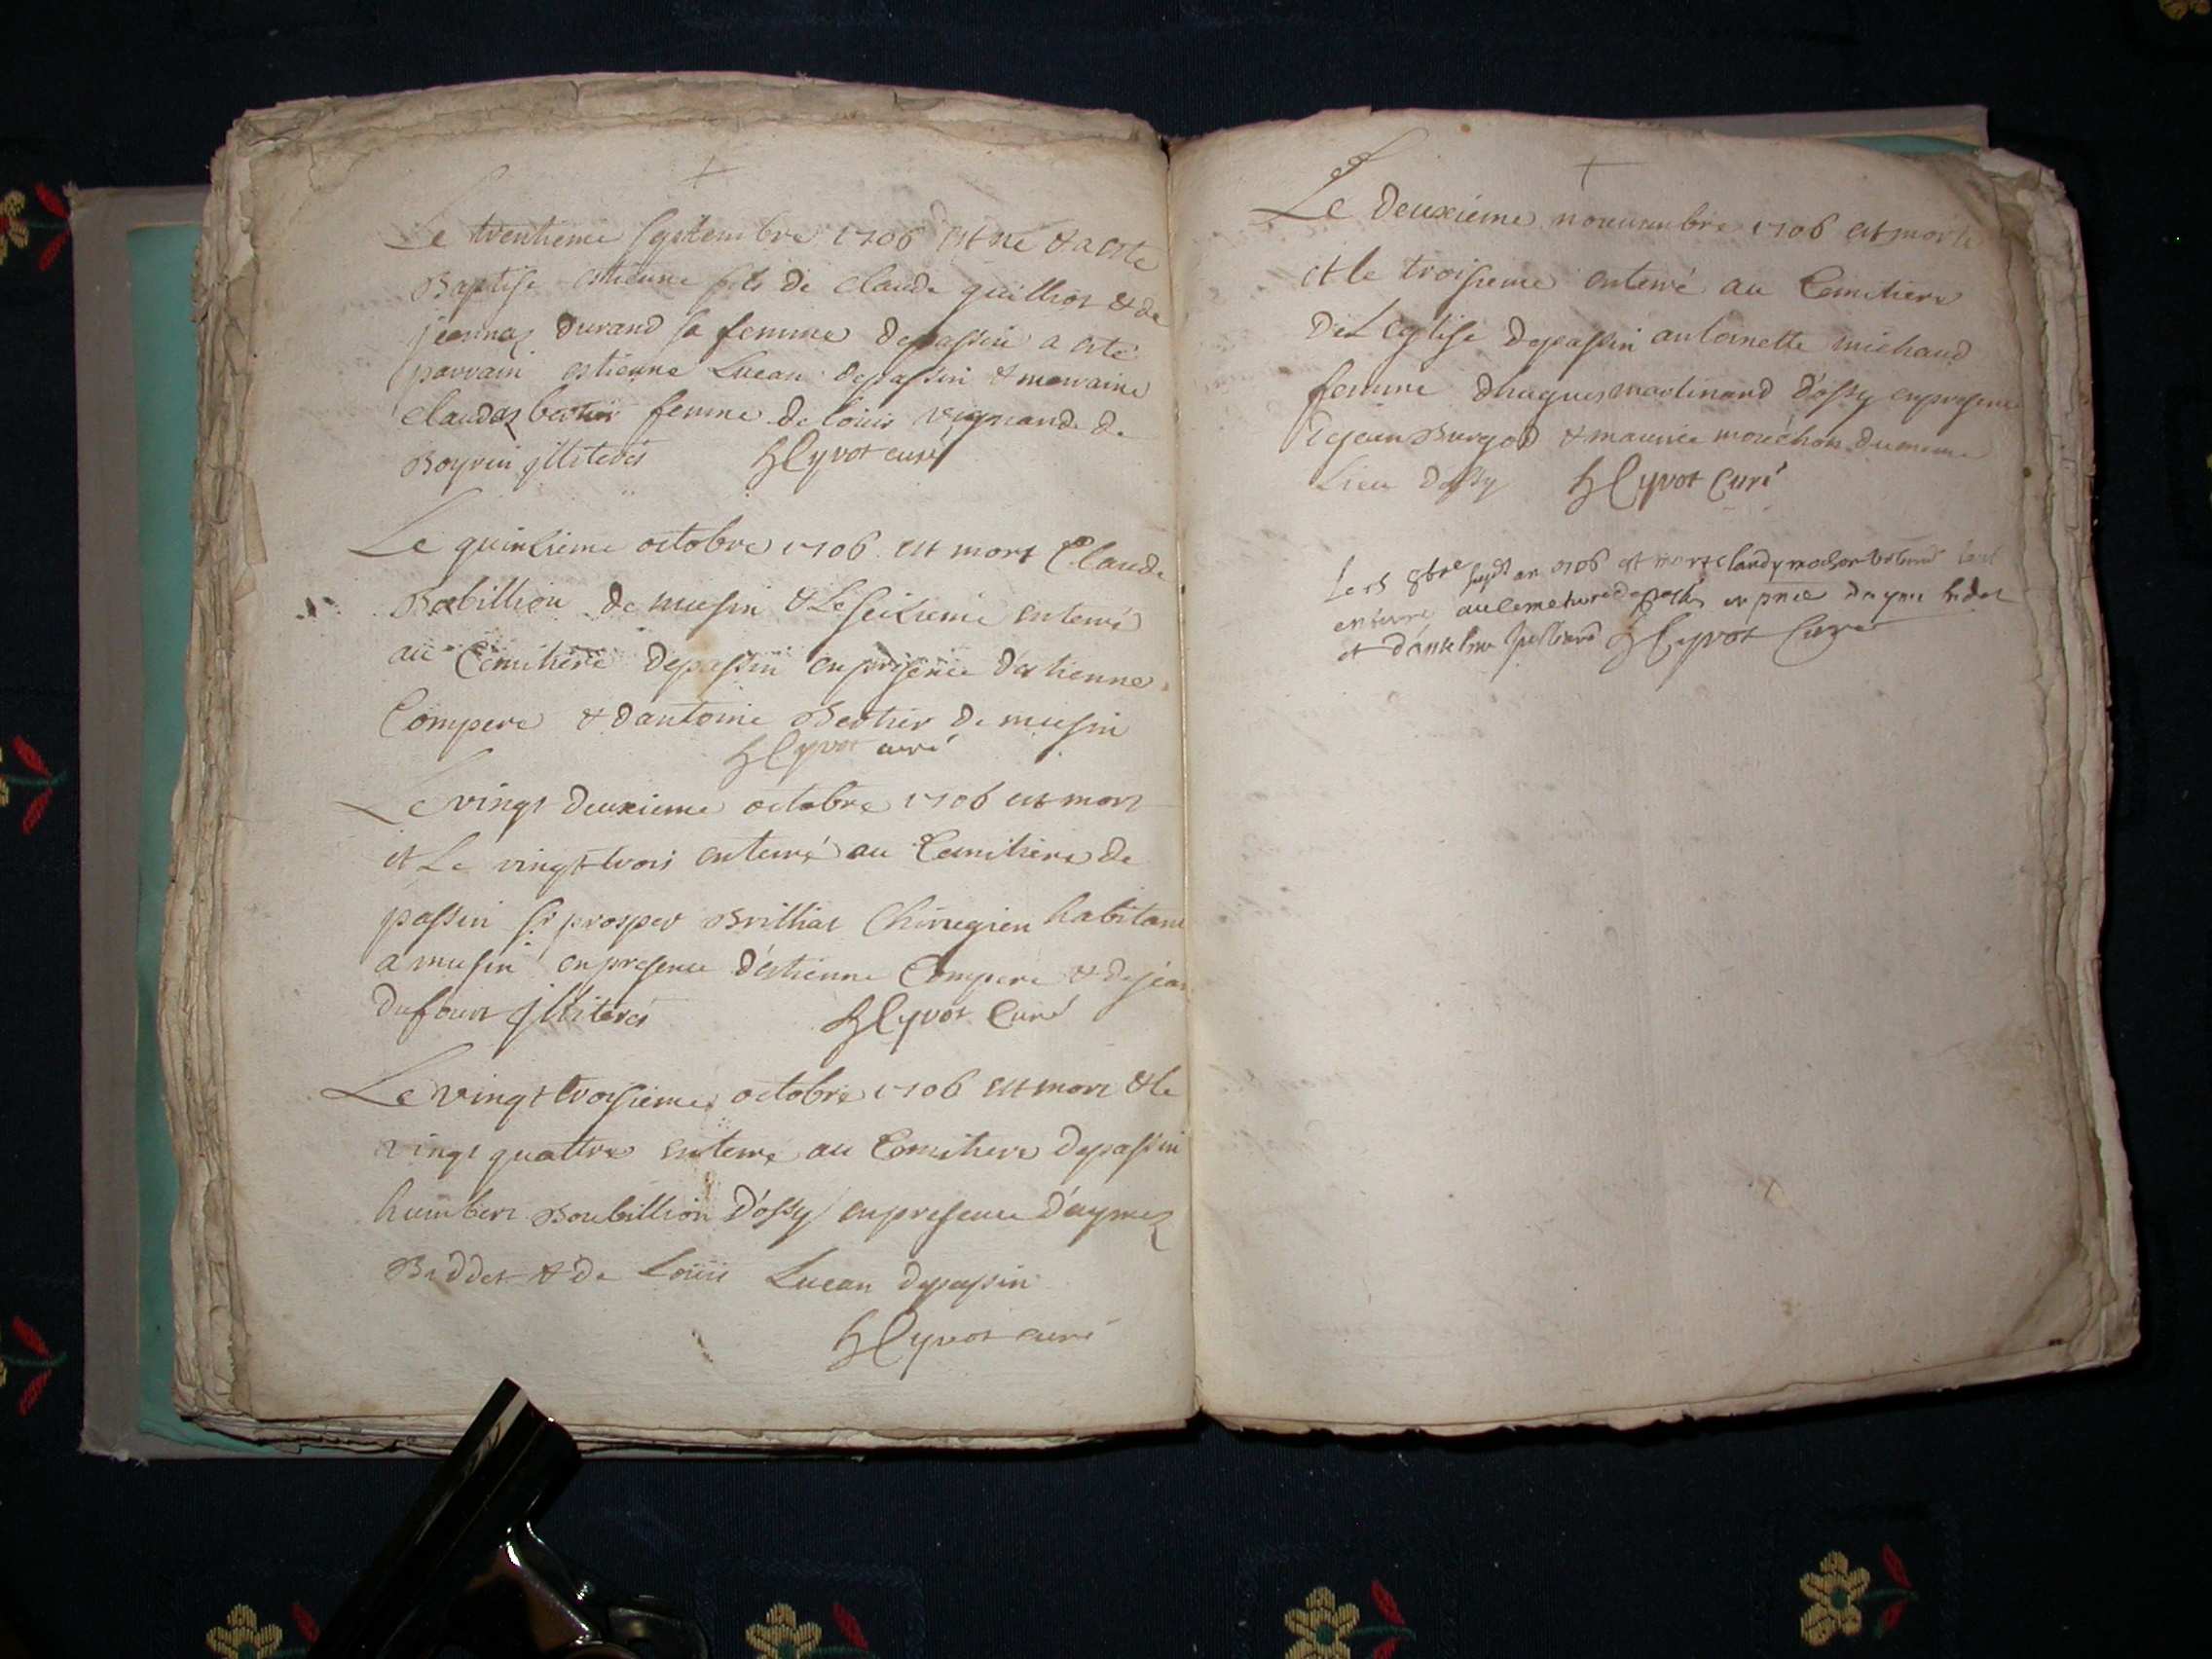 Le trentieme septembre 1706 est né & a esté
Baptise estienne fils de claude guilliot & de
jeannaz durand sa femme depassin a esté
parrain estienne Lucan depassin & marraine
claudaz bertier femme de louis de
Boyrin illiterés hlyvot curé
Le quinzieme octobre 1706 est mort Claude
Babillion de musin & Le seizieme enterré
au Cemitiere depassin en presence d'estienne
Compere & dantoine Bertier de musin
hlyvot curé
Le vingt deuxieme octobre 1706 est mort
et Le vingt trois enterré au Cemitiere de
passin sr prosper Brilliat Chirugien habitant
a musin en presence d'estienne Compere & de jean
dufour illiterés hlyvot Curé
Le vingt troisieme octobre 1706 est mort & le
vingt quattre enterré au Cemitiere depassin
humbert Boubillion d'ossy en presence d'aymez
Biddet & de Loüis Lucan depassin
hlyvot curé
Le deuxieme nouembre 1706 est morte
et le troisieme enterré au Cemitiere
de Leglise depassin antoinette michaud
femme dhugues martinand d'ossy en presence
de jean Burgod & maurice du meme
Lieu dossy hlyvot Curé
Le 15 8bre susdt an 1706 est mort
enterré au cemetiere de passin en pnce dayme bidet
et d'anselme Juilliard hlyvot Curé